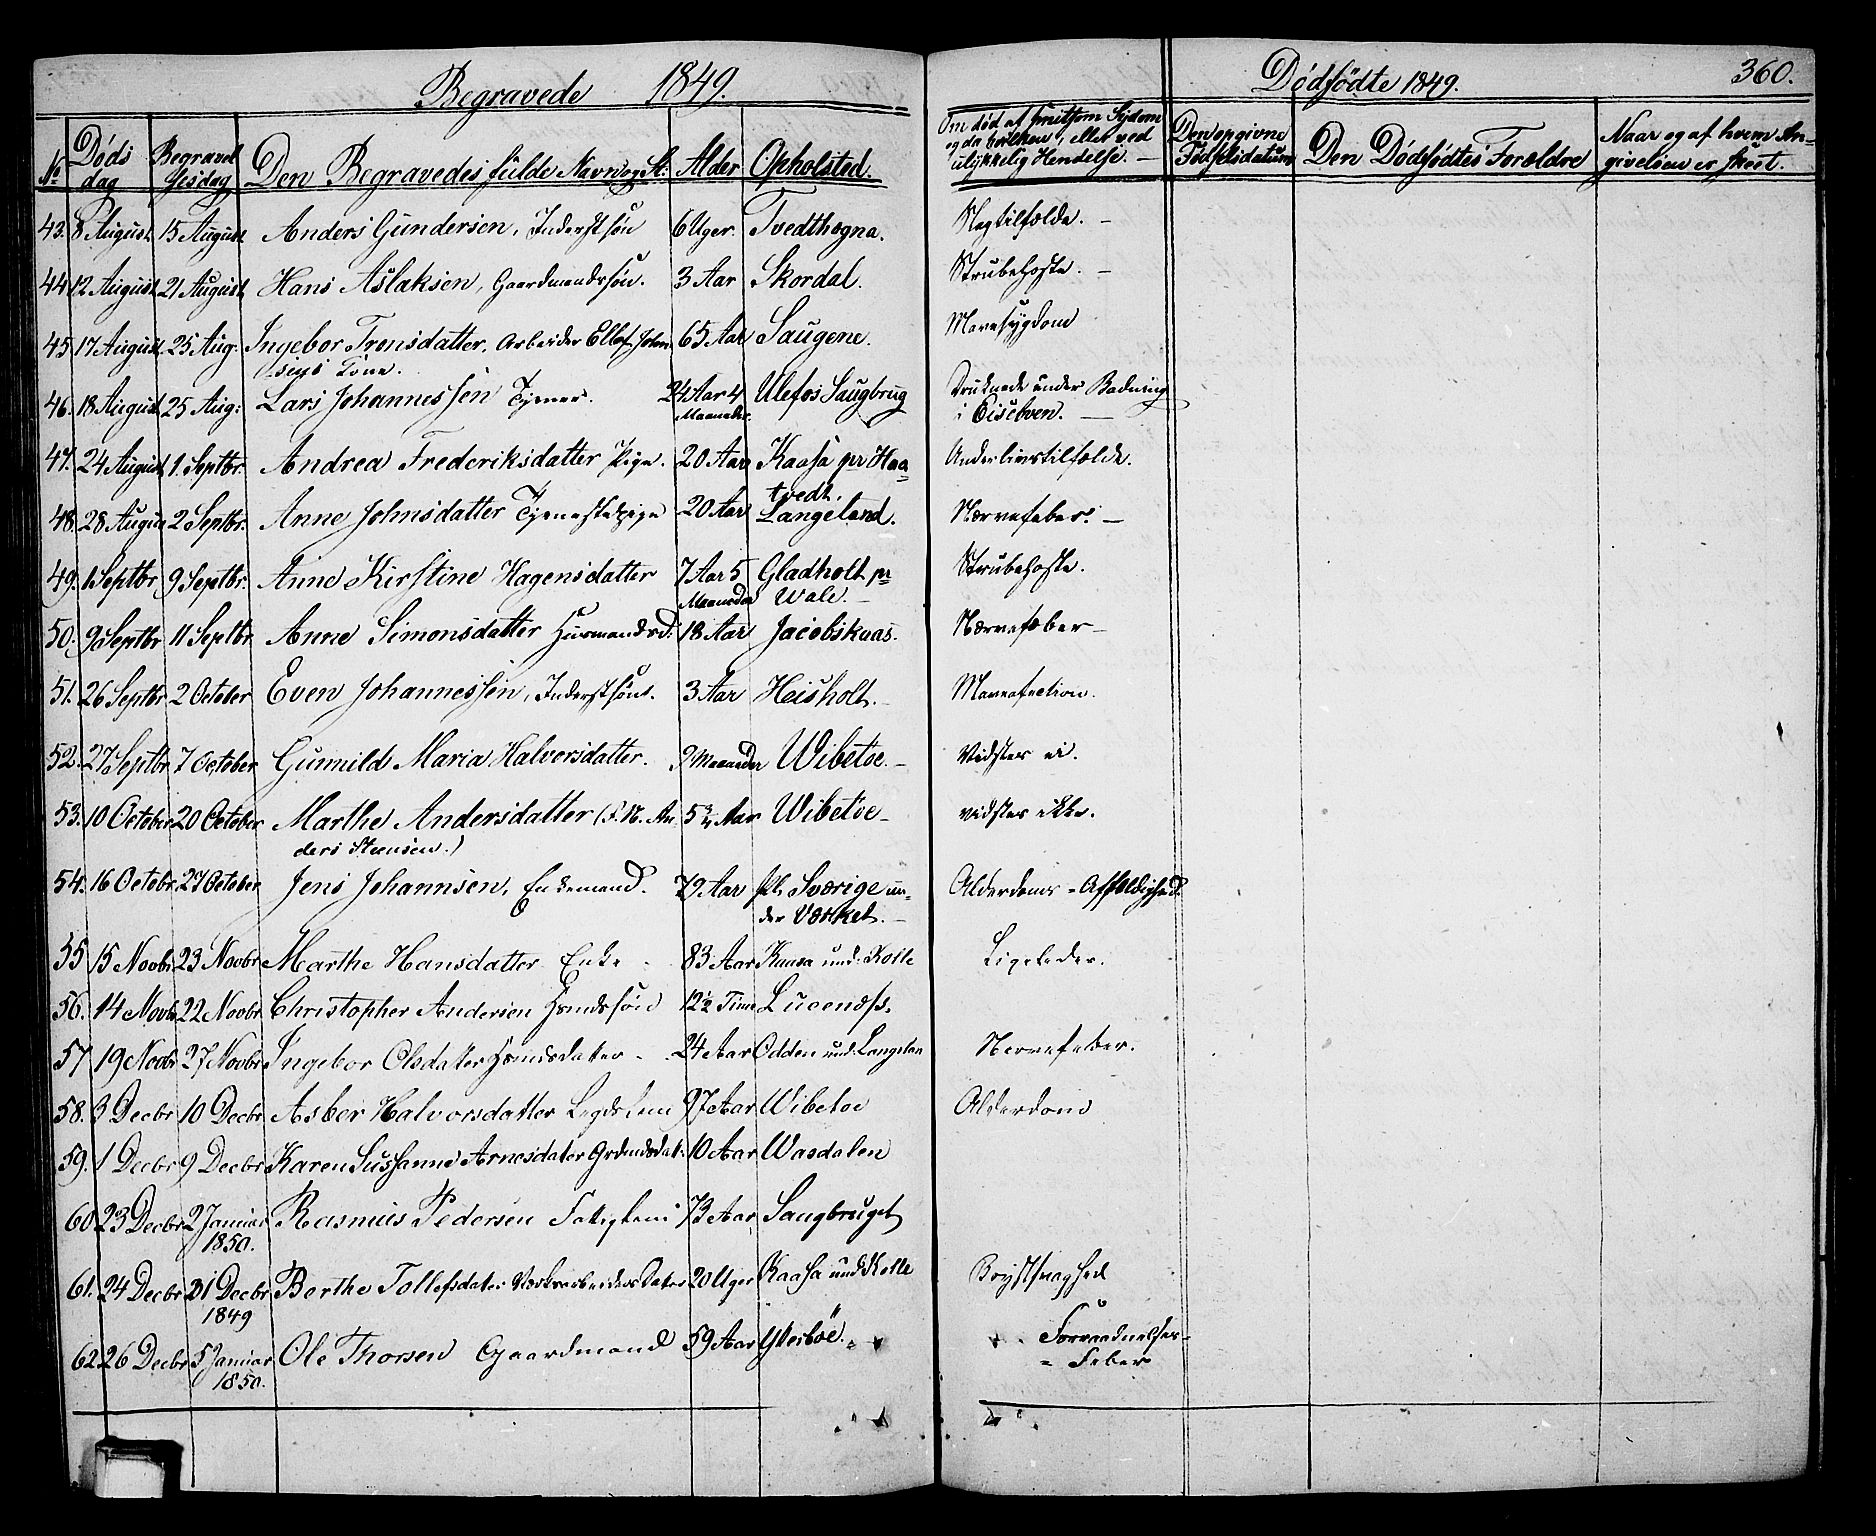 Begravede 1849.
Dödsfödte 1849.
360.
No Döds dag Begravel sesdag Den Begravedes fülde Navn og St: Alder Opholsted. Om död af smitsom Sÿdom og da hvilken, eller ved ulÿkkelig Hendelse. Den opgivne Födselsdatum Den Dödsfödtes Forældre Naar og af hvem Angivelsen er skeet.
43. 8 August 15 August Anders Gundersen, Inderstsön 6 Uger. Tvedthogna. Slagtilfælde.
44. 12 August 21 August Hans Aslaksen, Gaardmandssön. 3 Aar Skordal. Strubehoste.
45. 17 August 25 Aug: Ingebor Tronsdatter, Arbeider Ellef John
sens Kone. 65 Aar Saugene. Mavesygdom
46. 18 August 25 Aug: Lars Johannessen Tjener. 24 Aar 4
Maaneder. Ulefos Saugbrug Druknede under Badning
i Eiselven.
47. 24 August 1. Septbr. Andrea Frederiksdatter Pige. 20 Aar Kaasa pr Haa=
tvedt. Underlivstilfælde.
48. 28 Augus 2 Septbr. Anne Johnsdatter Tjenestepige 20 Aar Langeland. Nervefeber.
49. 1 Septbr 9 Septbr. Anne Kirstine Hagensdatter 7 Aar 5
Maaneder Gladholt pr
Wale. Strubehoste.
50. 9 Septbr 11 Septbr Anne Simonsdatter Huusmandsd. 18 Aar Jacobskaas. Nervefeber
51. 26 Septbr 2 October Even Johannessen, Inderstsöns. 3 Aar Heisholt. Mavefection.
52. 27 Septbr 7 October Gunnild Maria Halvorsdatter. 9 Maaneder Wibetoe. Vidstes ei.
53. 10 October 20 October Marthe Andersdatter (F. N. An
ders Steensen.) 5 3/4 Aar Wibetoe vidstes ikke.
54. 16 Octobr. 27 October Jens Johannsen, Enkemand. 79 Aar pl. Sværige un=
der Værket. Alderdoms-Affældighed.
55 15 Novbr 23 Novbr Marthe Hansdatter Enke 83 Aar Kaasa und: Kolle Ligeledes.
56. 14 Novbr 22 Novbr Christopher Andersen Hsmdssön 12 1/2 Time Lucenæss.
57 19 Novbr 27 Novbr Ingebor Olsdatter Hsmdsdatter 24 Aar Odden und: Langelan Nervefeber.
58. 3 Decbr 10 Decbr Asber Halvorsdatter Legdslem 97 Aar Wibetoe Alderdom
59. 1 Decbr 9 Decbr Karen Sussanne Arnesdater Grdmdsdat: 10 Aar Wasdalen
60. 23 Decbr 2 Januar
1850. Rasmus Pedersen Fattiglem 73 Aar Saugbruget
61. 24 Decbr 31 Decbr
1849 Berthe Tollefsdater Værksarbeiders Dater 20 Uger Kaasa und: Kolle Brystsvaghed
62. 26 Decbr 5 Januar
1850. Ole Thorsen Gaardmand 59 Aar Ytterböe. Forraadnelses=
Feber